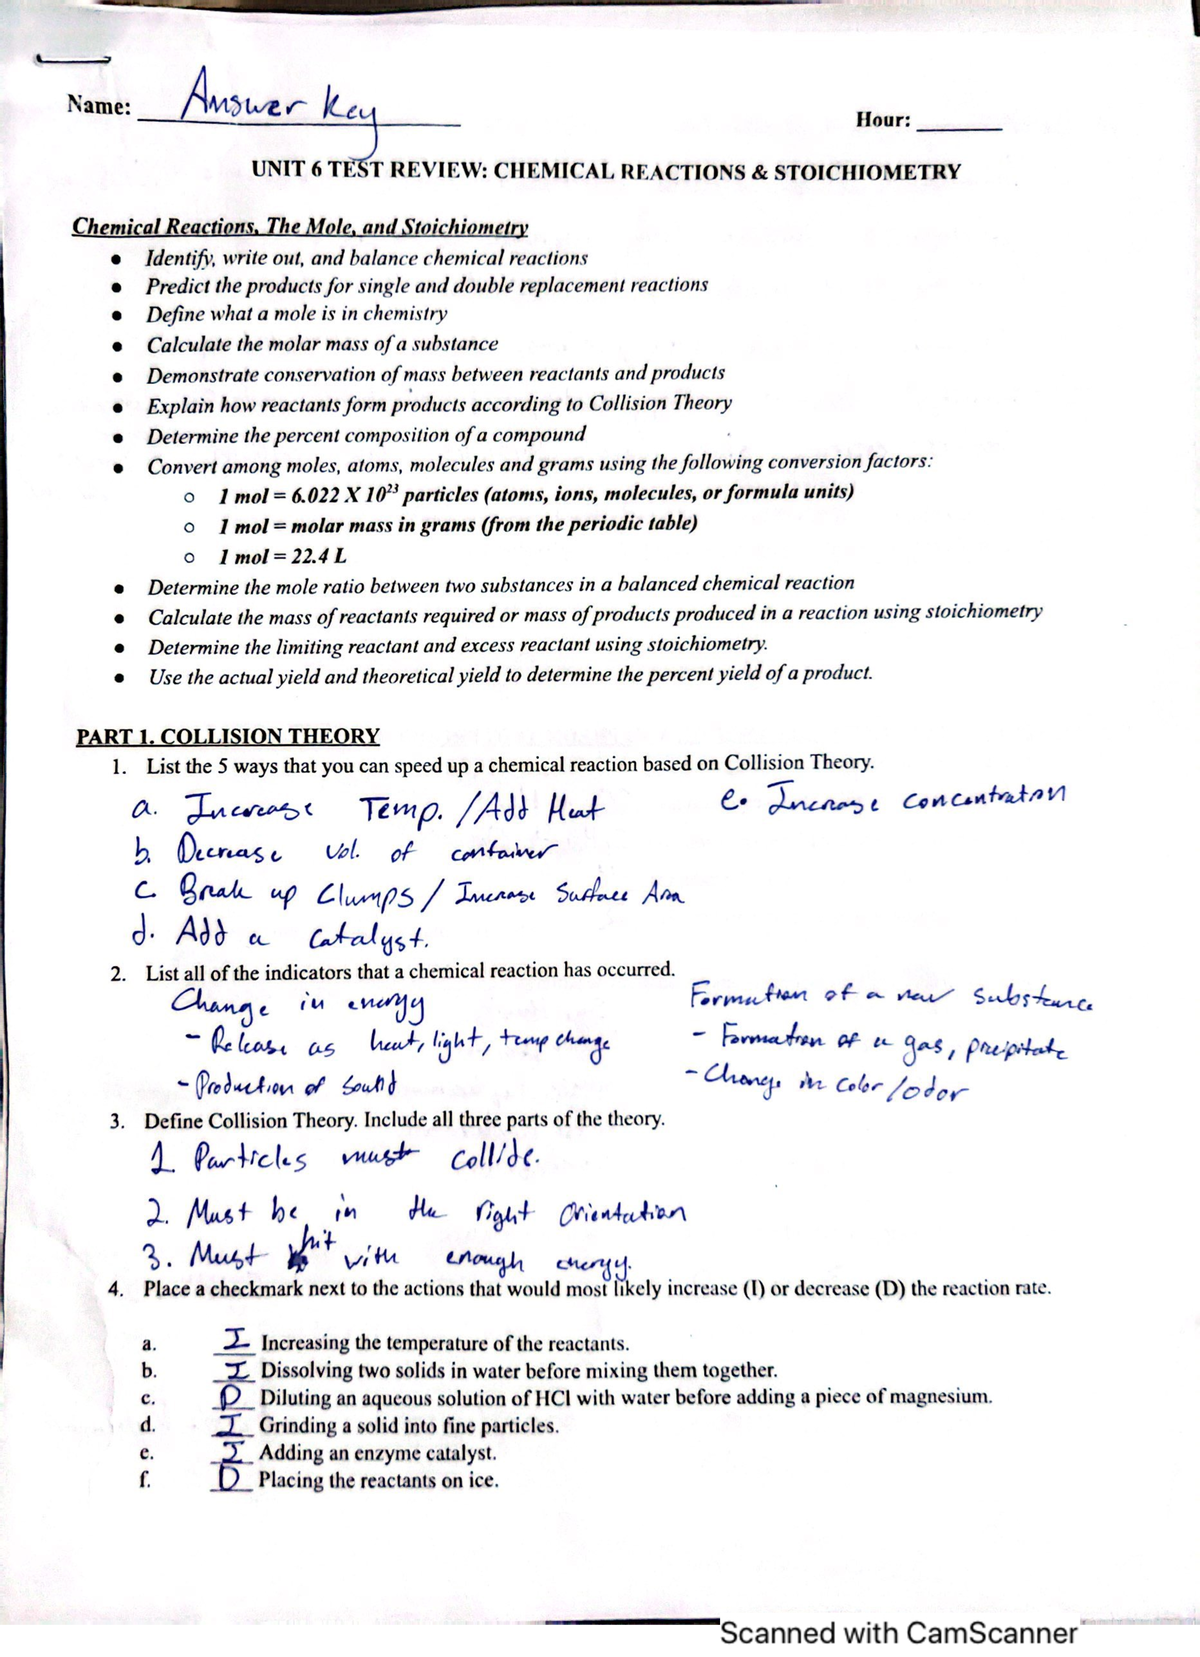 Name: Answer Key
Hour:
UNIT 6 TEST REVIEW: CHEMICAL REACTIONS & STOICHIOMETRY
Chemical Reactions, The Mole, and Stoichiometry
● Identify, write out, and balance chemical reactions
● Predict the products for single and double replacement reactions
● Define what a mole is in chemistry
● Calculate the molar mass of a substance
● Demonstrate conservation of mass between reactants and products
● Explain how reactants form products according to Collision Theory
● Determine the percent composition of a compound
● Convert among moles, atoms, molecules and grams using the following conversion factors:
○ 1 mol = 6.022 X 10²³ particles (atoms, ions, molecules, or formula units)
○ 1 mol = molar mass in grams (from the periodic table)
○ 1 mol = 22.4 L
● Determine the mole ratio between two substances in a balanced chemical reaction
● Calculate the mass of reactants required or mass of products produced in a reaction using stoichiometry
● Determine the limiting reactant and excess reactant using stoichiometry.
● Use the actual yield and theoretical yield to determine the percent yield of a product.
PART 1. COLLISION THEORY
1. List the 5 ways that you can speed up a chemical reaction based on Collision Theory.
a. Increase Temp. / Add Heat
b. Decrease vol. of container
c. Break up Clumps / Increase Surface Area
d. Add a Catalyst.
e. Increase concentration
2. List all of the indicators that a chemical reaction has occurred.
Change in energy
- Release as heat, light, temp change
- Production of sound
Formation of a new substance
- Formation of a gas, precipitate
- Change in color / odor
3. Define Collision Theory. Include all three parts of the theory.
1. Particles must collide.
2. Must be in the right orientation
3. Must hit with enough energy.
4. Place a checkmark next to the actions that would most likely increase (I) or decrease (D) the reaction rate.
a. I Increasing the temperature of the reactants.
b. I Dissolving two solids in water before mixing them together.
c. D Diluting an aqueous solution of HCl with water before adding a piece of magnesium.
d. I Grinding a solid into fine particles.
e. I Adding an enzyme catalyst.
f. D Placing the reactants on ice.
Scanned with CamScanner